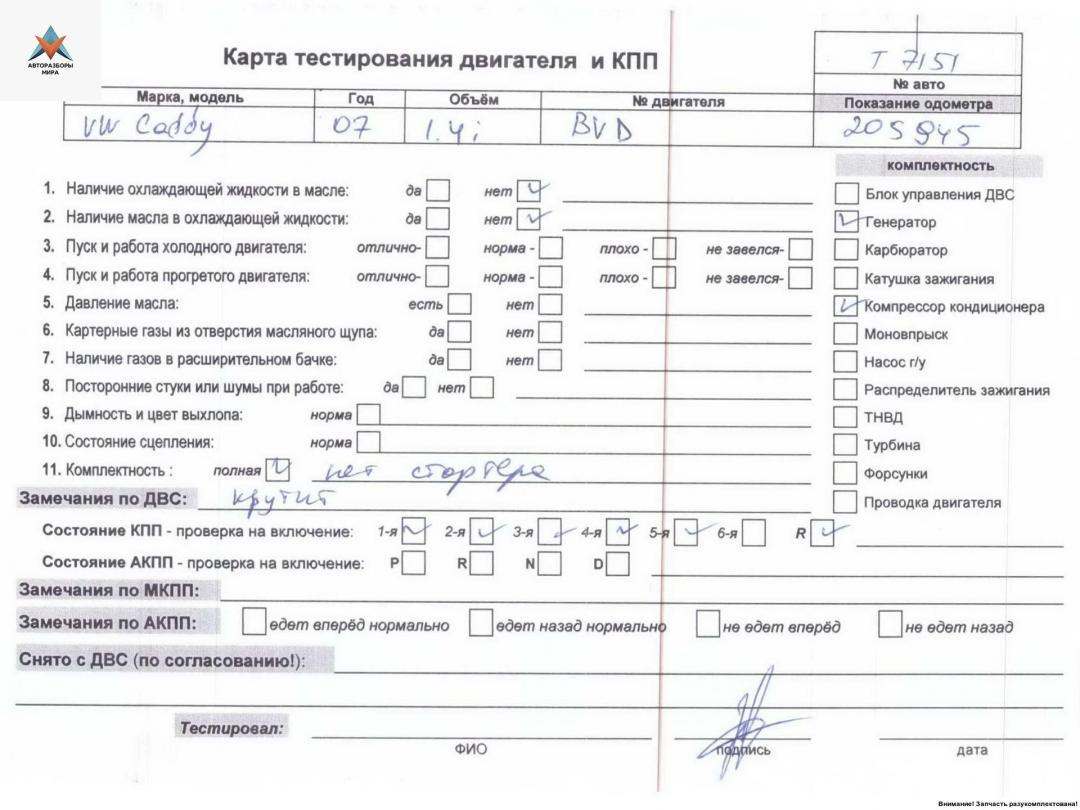 АВТОРАЗБОРЫ
МИРА
Карта тестирования двигателя и КПП
Т 7151
№ авто
Марка, модель Год Объём № двигателя Показание одометра
VW Caddy 07 1.4i BVD 205945
комплектность
1. Наличие охлаждающей жидкости в масле: да нет Блок управления ДВС
2. Наличие масла в охлаждающей жидкости: да нет Генератор
3. Пуск и работа холодного двигателя: отлично- норма - плохо - не завелся- Карбюратор
4. Пуск и работа прогретого двигателя: отлично- норма - плохо - не завелся- Катушка зажигания
5. Давление масла: есть нет Компрессор кондиционера
6. Картерные газы из отверстия масляного щупа: да нет Моновпрыск
7. Наличие газов в расширительном бачке: да нет Насос г/у
8. Посторонние стуки или шумы при работе: да нет Распределитель зажигания
9. Дымность и цвет выхлопа: норма ТНВД
10. Состояние сцепления: норма Турбина
11. Комплектность : полная нет стартера Форсунки
Замечания по ДВС: крутит Проводка двигателя
Состояние КПП - проверка на включение: 1-я 2-я 3-я 4-я 5-я 6-я R
Состояние АКПП - проверка на включение: P R N D
Замечания по МКПП:
Замечания по АКПП: едет вперёд нормально едет назад нормально не едет вперёд не едет назад
Снято с ДВС (по согласованию!):
Тестировал:
ФИО подпись дата
Внимание! Запчасть разукомплектована!